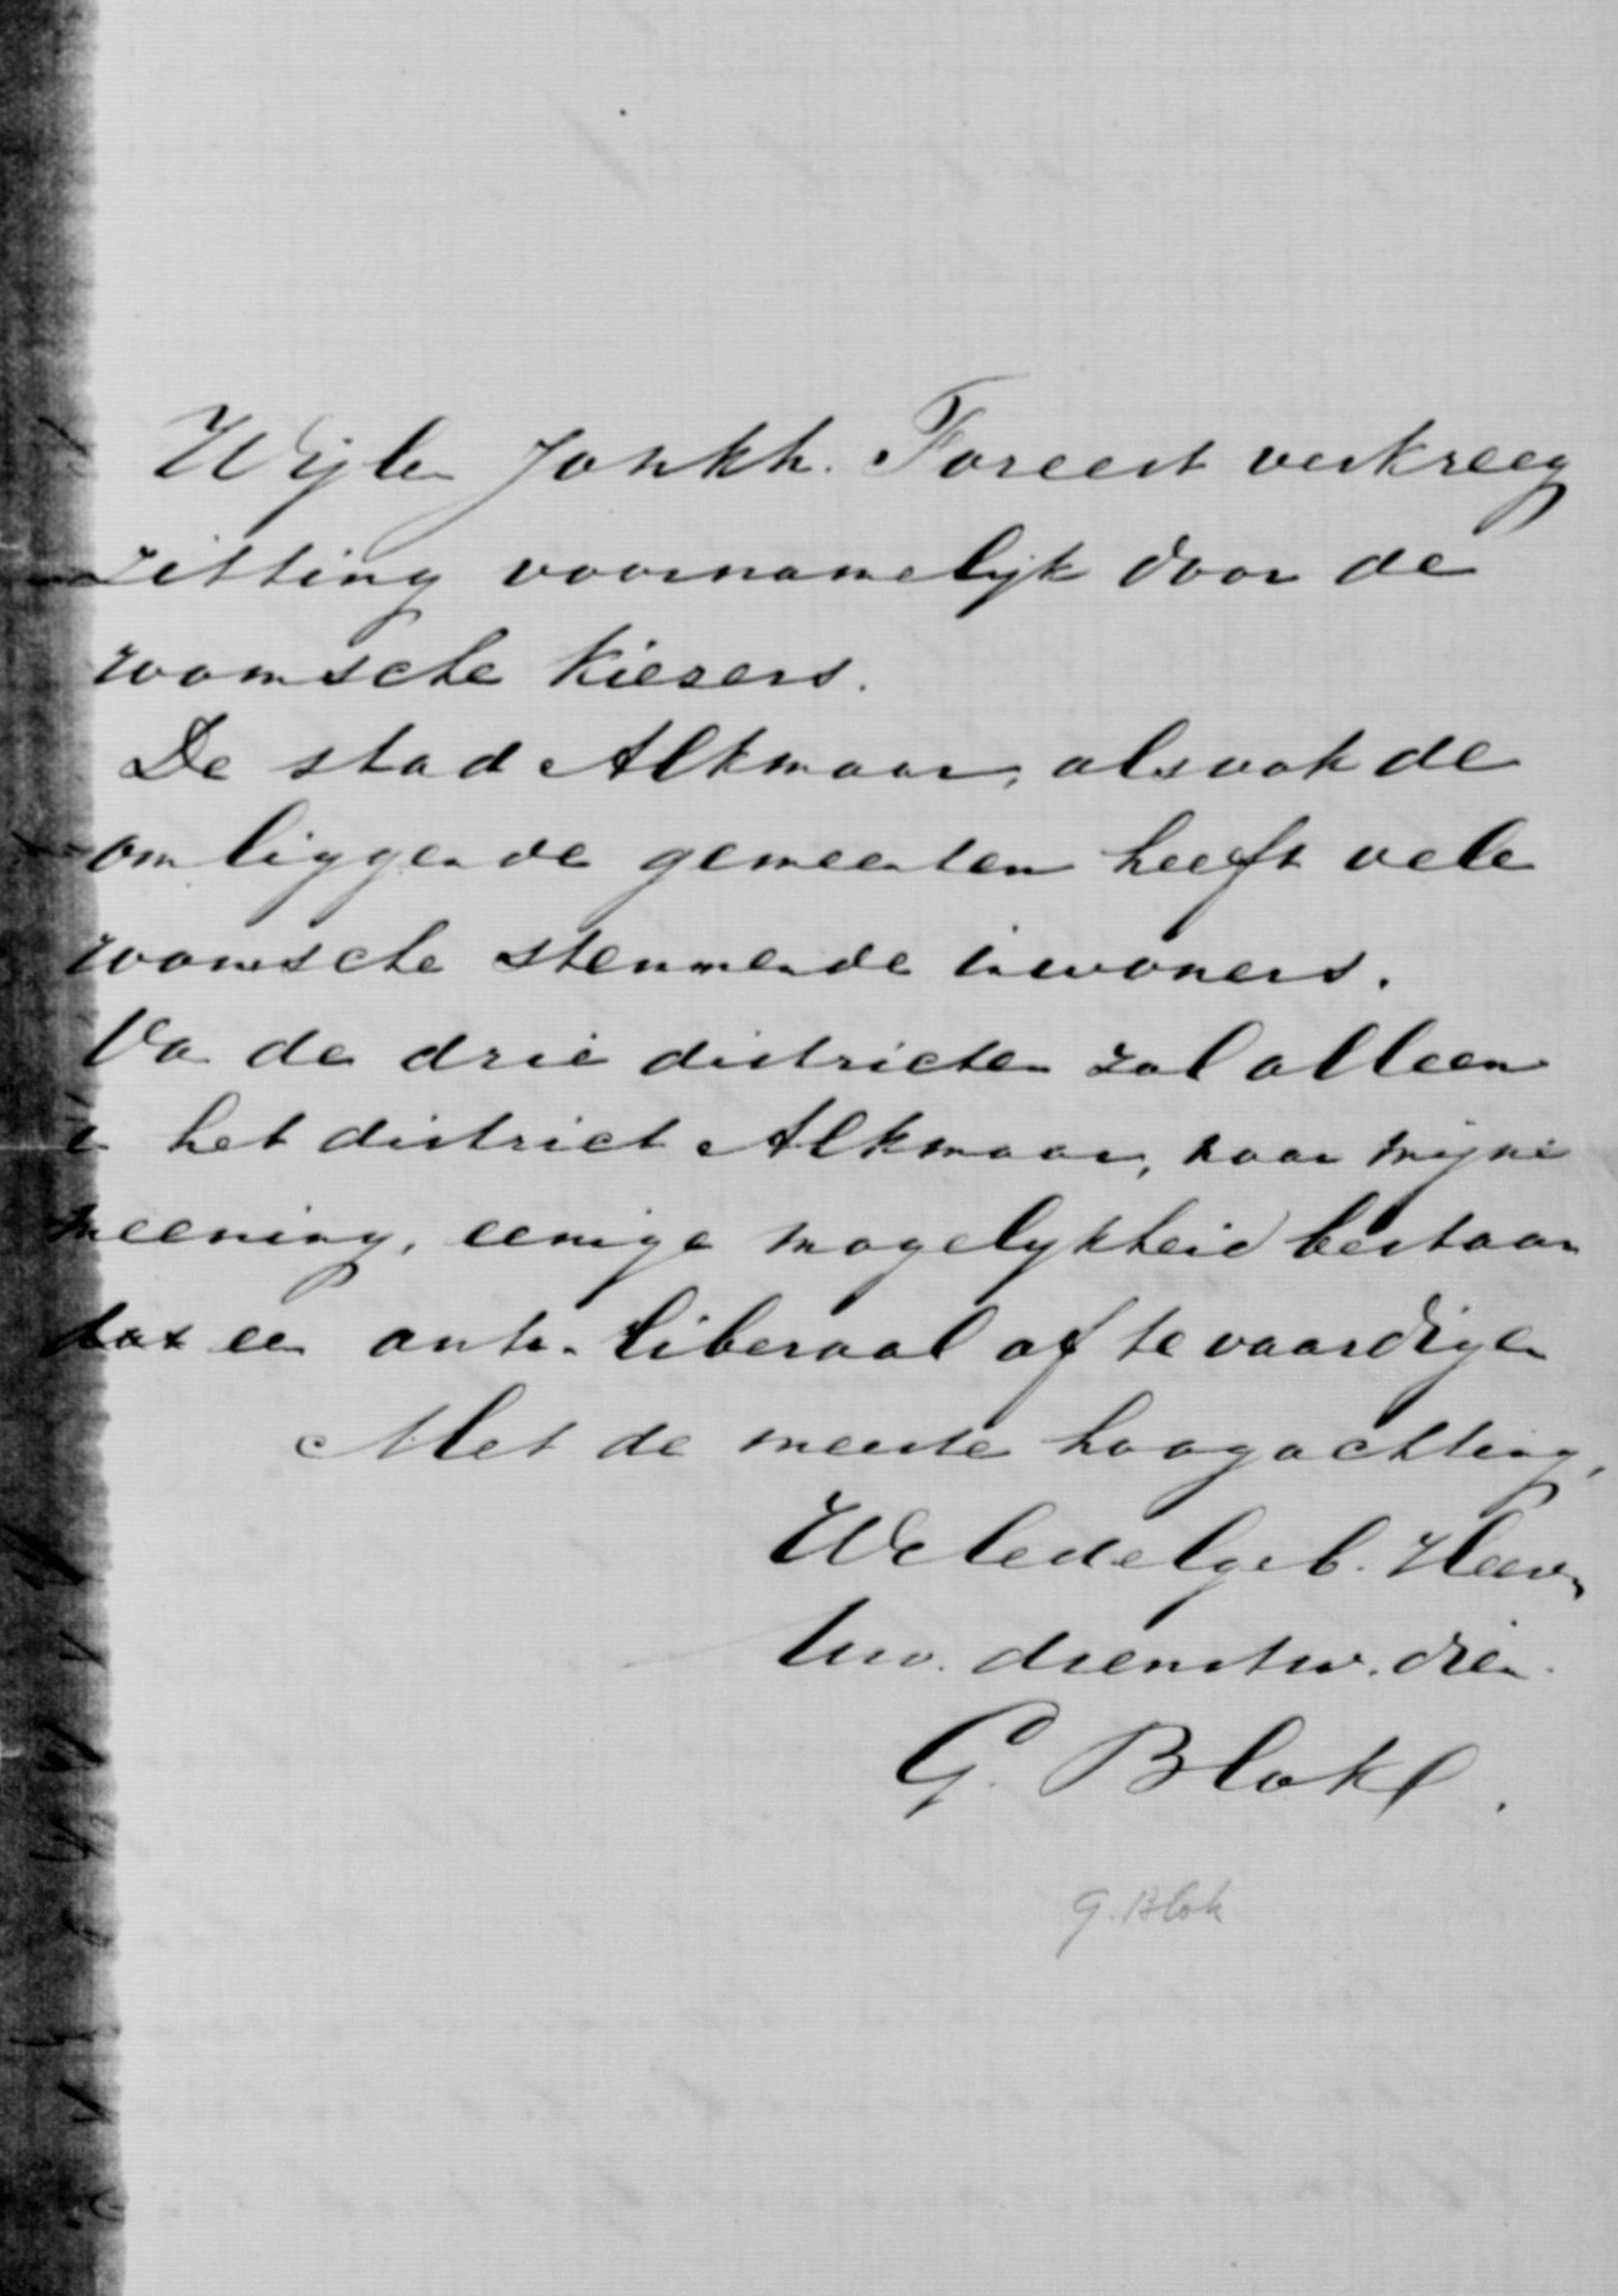 Wijlen Jonkh. Foreest verkreeg
zitting voornamelijk door de
roomsche kiezers.
De stad Alkmaar, alsook de
omliggende gemeenten heeft vele
roomsche stemmende inwoners.
Van de drie districten zal alleen
in het district Alkmaar, naar mijne
meening, eenige mogelykheid bestaan
een anti-liberaal af te vaardigen
Met de meeste hoogachting,
Weledelgeb. Heer,
Uw. dienstw. dien.
G. Blok
G. Blok